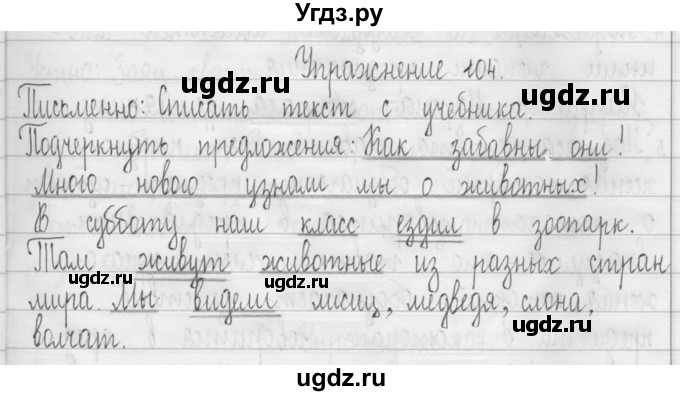 Угдз.ру
Упражнение 104.
ugdz.ru ugdz.ru
Письменно: Списать текст с учебника.
Подчеркнуть предложения: Как забавны они!
Много нового узнали мы о животных!
В субботу наш класс ездил в зоопарк.
ugdz.ru
Там живут животные из разных стран
мира. Мы видели лисиц, медведя, слона,
ugdz.ru ugdz.ru
волчат.
ugdz.ru